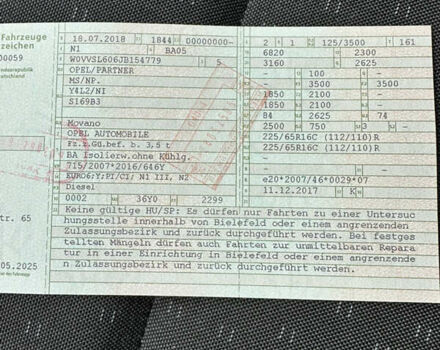 Fahrzeuge
zeichen
00059
undesrepublik
eutschland
18.07.2018 1844 00000000- 2 1 125/3500 161
N1 BA05 6820 2300
W0VVSL606JB154779 5 3160 2625
OPEL/PARTNER - 100 -
MS/NP. - 3500 3500
Y4L2/NI 1850 2100 -
S169B3 1850 2100 -
84 2625 74
Movano 2500 750 -
OPEL AUTOMOBILE 225/65R16C (112/110)R
Fz.z.Gü.bef. b. 3,5 t 225/65R16C (112/110)R
BA Isolierw.ohne Kühlg. -
715/2007*2016/646Y -
EURO6;Y;PI/CI/ N1 III, N2 e20*2007/46*0029*07
Diesel 11.12.2017 K
0002 36Y0 2299
Keine gültige HU/SP: Es dürfen nur Fahrten zu einer Untersuc
hungsstelle innerhalb von Bielefeld oder einem angrenzenden
Zulassungsbezirk und zurück durchgeführt werden. Bei festges
tellten Mängeln dürfen auch Fahrten zur unmittelbaren Repara
tur in einer Einrichtung in Bielefeld oder einem angrenzende
n Zulassungsbezirk und zurück durchgeführt werden.
tr. 65
05.2025